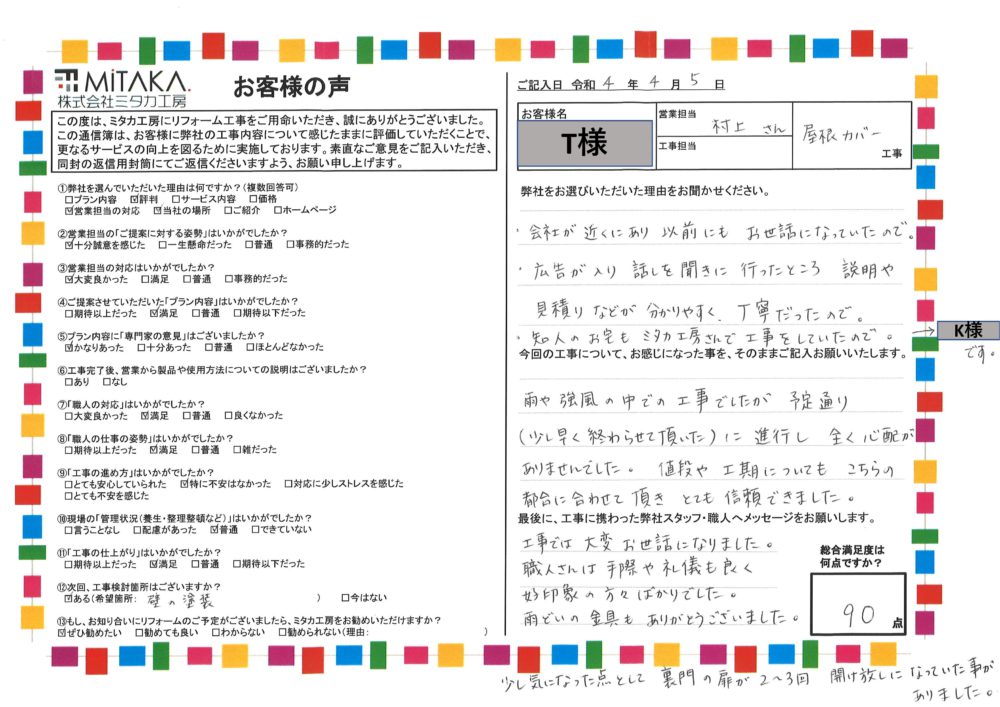 MiTAKA.
株式会社ミタカ工房
お客様の声
この度は、ミタカ工房にリフォーム工事をご用命いただき、誠にありがとうございました。
この通信簿は、お客様に弊社の工事内容について感じたままに評価していただくことで、
更なるサービスの向上を図るために実施しております。素直なご意見をご記入いただき、
同封の返信用封筒にてご返信くださいますよう、お願い申し上げます。
①弊社を選んでいただいた理由は何ですか?(複数回答可)
□プラン内容 ☑評判 □サービス内容 □価格
☑営業担当の対応 ☑当社の場所 □ご紹介 □ホームページ
②営業担当の「ご提案に対する姿勢」はいかがでしたか?
☑十分誠意を感じた □一生懸命だった □普通 □事務的だった
③営業担当の対応はいかがでしたか?
☑大変良かった □満足 □普通 □事務的だった
④ご提案させていただいた「プラン内容」はいかがでしたか?
□期待以上だった ☑満足 □普通 □期待以下だった
⑤プラン内容に「専門家の意見」はございましたか?
☑かなりあった □十分あった □普通 □ほとんどなかった
⑥工事完了後、営業から製品や使用方法についての説明はございましたか?
□あり □なし
⑦「職人の対応」はいかがでしたか?
□大変良かった ☑満足 □普通 □良くなかった
⑧「職人の仕事の姿勢」はいかがでしたか?
□期待以上だった ☑満足 □普通 □雑だった
⑨「工事の進め方」はいかがでしたか?
□とても安心していられた ☑特に不安はなかった □対応に少しストレスを感じた
□とても不安を感じた
⑩現場の「管理状況(養生・整理整頓など)」はいかがでしたか?
□言うことなし □配慮があった ☑普通 □できていない
⑪「工事の仕上がり」はいかがでしたか?
□期待以上だった ☑満足 □普通 □期待以下だった
⑫次回、工事検討箇所はございますか?
☑ある(希望箇所: 壁の塗装 ) □今はない
⑬もし、お知り合いにリフォームのご予定がございましたら、ミタカ工房をお勧めいただけますか?
☑ぜひ勧めたい □勧めても良い □わからない □勧められない(理由: )
ご記入日 令和 4 年 4 月 5 日
お客様名
T様
営業担当 村上 さん
工事担当
屋根カバー
工事
弊社をお選びいただいた理由をお聞かせください。
・会社が近くにあり 以前にも お世話になっていたので。
・広告が入り 話しを聞きに 行ったところ 説明や
見積りなどが 分かりやすく、丁寧だったので。
・知人のお宅も ミタカ工房さんで 工事をしていたので。
→ K様
です。
今回の工事について、お感じになった事を、そのままご記入お願いいたします。
雨や強風の中での工事でしたが 予定通り
(少し早く終わらせて頂いた)に進行し 全く心配が
ありませんでした。 値段や 工期についても こちらの
都合に合わせて頂き とても信頼できました。
最後に、工事に携わった弊社スタッフ・職人へメッセージをお願いします。
工事では 大変 お世話になりました。
職人さんは 手際や 礼儀も良く
好印象の方々ばかりでした。
雨どいの金具も ありがとうございました。
総合満足度は
何点ですか?
90 点
少し気になった点として 裏門の扉が 2〜3回 開け放しになっていた事が
ありました。